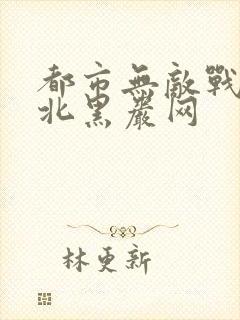 都市無敵戰
北黑嚴网
林更新